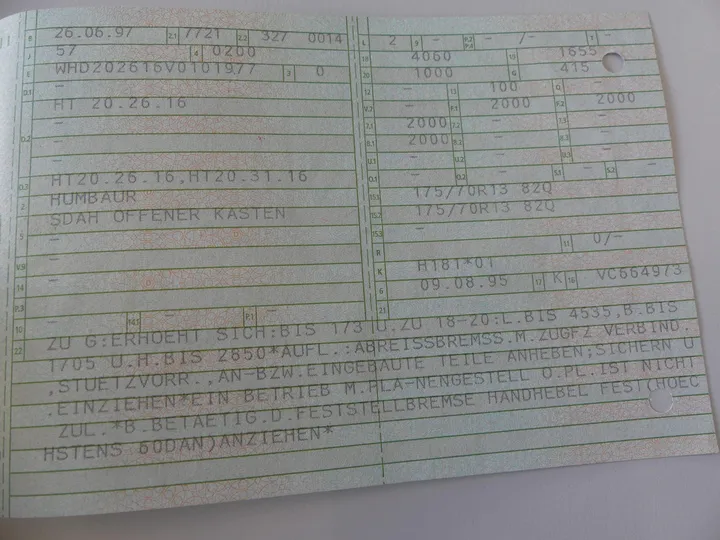 B 26.06.97 2.1 7721 2.2 327 0014 L 2 9 - P.2 P.4 - /- T -
J 57 4 0200 18 4060 19 1655
E WHD202616V0101977 3 0 20 1000 G 415
D.1 - - 13 100 Q -
HT 20.26.16 V.7 - F.1 2000 F.2 2000
D.2 - 7.1 2000 7.2 - 7.3 -
- 8.1 2000 8.2 - 8.3 -
- U.1 - U.2 - U.3 -
D.3 HT20.26.16,HT20.31.16 O.1 - O.2 - S.1 - S.2 -
2 HUMBAUR 15.1 175/70R13 82Q
SDAH OFFENER KASTEN 15.2 175/70R13 82Q
5 - 15.3 -
V.9 - R - 11 0/-
14 - K H181*01
P.3 - 6 09.08.95 17 K 16 VC664973
10 - 14.1 - P.1 - 21
22 ZU G:ERHOEHT SICH:BIS 173 U.ZU 18-20:L.BIS 4535,B.BIS
1705 U.H.BIS 2850*AUFL.:ABREISSBREMSS.M.ZUGFZ VERBIND.
,STUETZVORR.,AN-BZW.EINGEBAUTE TEILE ANHEBEN;SICHERN U
.EINZIEHEN*EIN BETRIEB M.PLA-NENGESTELL O.PL.IST NICHT
ZUL.*B.BETAETIG.D.FESTSTELLBREMSE HANDHEBEL FEST(HOEC
HSTENS 60DAN)ANZIEHEN*